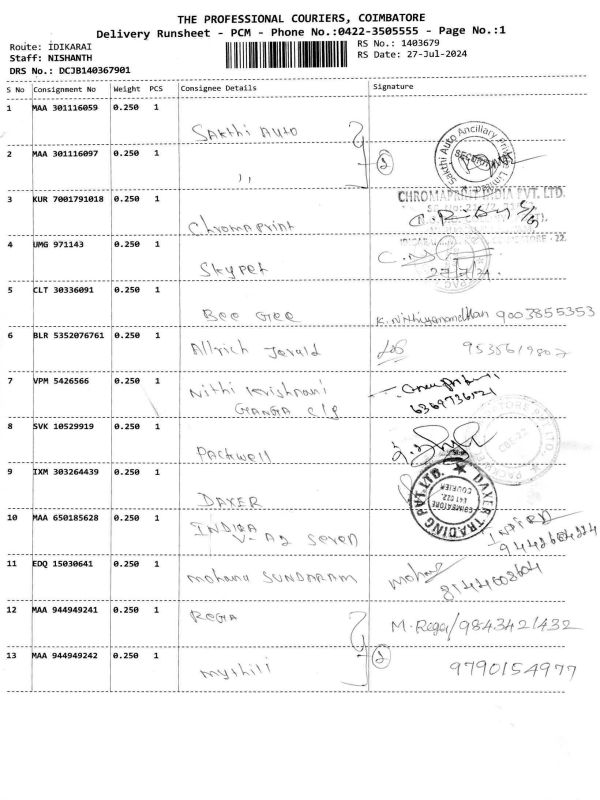 THE PROFESSIONAL COURIERS, COIMBATORE
Delivery Runsheet - PCM - Phone No.:0422-3505555 - Page No.:1
Route: IDIKARAI
RS No.: 1403679
Staff: NISHANTH
RS Date: 27-Jul-2024
DRS No.: DCJB140367901
S No Consignment No Weight PCS Consignee Details Signature
1 MAA 301116059 0.250 1
Sakthi Auto
Sakthi Auto Ancillary
2 MAA 301116097 0.250 1
,, 2
3 KUR 7001791018 0.250 1
CHROMAPRINT INDIA PVT. LTD.
Chromaprint
4 UMG 971143 0.250 1
Skypet
27/7/24
5 CLT 30336091 0.250 1
Bee Gee K. Nithiyanandhan 9003855353
6 BLR 5352076761 0.250 1
Allrich Jerald
7 VPM 5426566 0.250 1
Nithi Krishnani
GANGA
8 SVK 10529919 0.250 1
Packwell
9 IXM 303264439 0.250 1
DAXER
DAXER TRADING PVT. LTD.
COIMBATORE
641 022.
10 MAA 650185628 0.250 1
INDIRA
V- A2 Seven
11 EDQ 15030641 0.250 1
Mohana SUNDARAM Mohan
8144008604
12 MAA 944949241 0.250 1
Rega M. Rega/9843421432
13 MAA 944949242 0.250 1
2
9790154977